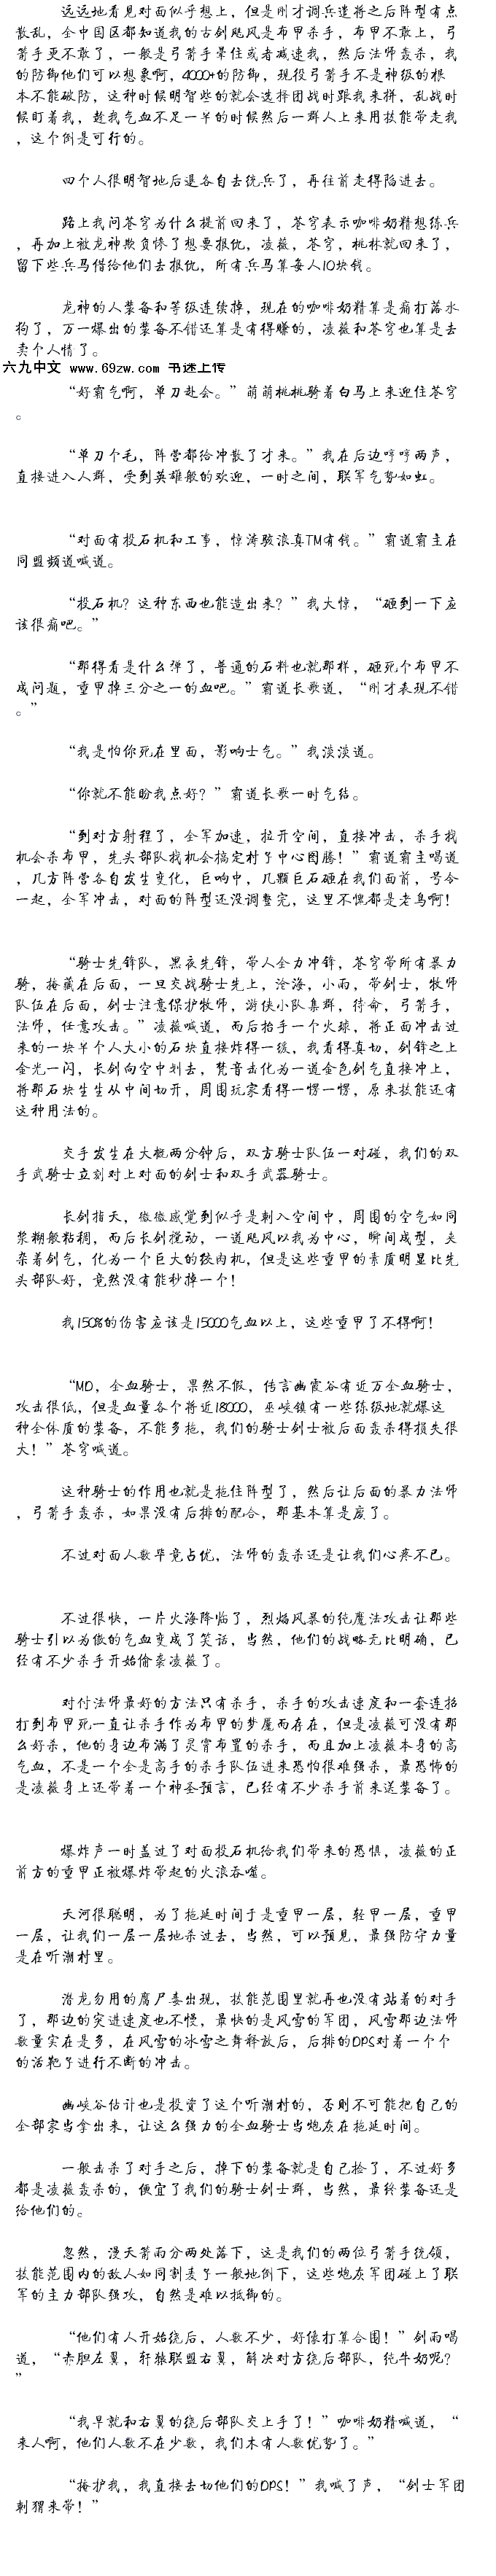 远远地看见对面似乎想上，但是刚才调兵遣将之后阵型有点
散乱，全中国区都知道我的古剑飓风是布甲杀手，布甲不敢上，弓
箭手更不敢了，一般是弓箭手晕住或者减速我，然后法师轰杀，我
的防御他们可以想象啊，4000+的防御，现役弓箭手不是神级的根
本不能破防，这种时候明智些的就会选择团战时跟我来拼，乱战时
候盯着我，趁我气血不足一半的时候然后一群人上来用技能带走我
，这个倒是可行的。
四个人很明智地后退各自去统兵了，再往前走得陷进去。
路上我问苍穹为什么提前回来了，苍穹表示咖啡奶精想练兵
，再加上被龙神欺负惨了想要报仇，凌薇，苍穹，桃林就回来了，
留下些兵马借给他们去报仇，所有兵马算每人10块钱。
龙神的人装备和等级连续掉，现在的咖啡奶精算是痛打落水
狗了，万一爆出的装备不错还算是有得赚的，凌薇和苍穹也算是去
卖个人情了。
六九中文 www.69zw.com 书迷上传
“好霸气啊，单刀赴会。”萌萌桃桃骑着白马上来迎住苍穹
。
“单刀个毛，阵营都给冲散了才来。”我在后边哼哼两声，
直接进入人群，受到英雄般的欢迎，一时之间，联军气势如虹。
“对面有投石机和工事，惊涛骇浪真TM有钱。”霸道霸主在
同盟频道喊道。
“投石机？这种东西也能造出来？”我大惊，“砸到一下应
该很痛吧。”
“那得看是什么弹了，普通的石料也就那样，砸死个布甲不
成问题，重甲掉三分之一的血吧。”霸道长歌道，“刚才表现不错
。”
“我是怕你死在里面，影响士气。”我淡淡道。
“你就不能盼我点好？”霸道长歌一时气结。
“到对方射程了，全军加速，拉开空间，直接冲击，杀手找
机会杀布甲，先头部队找机会搞定村子中心图腾！”霸道霸主喝道
，几方阵营各自发生变化，巨响中，几颗巨石砸在我们面前，号令
一起，全军冲击，对面的阵型还没调整完，这里不愧都是老鸟啊！
“骑士先锋队，黑夜先锋，带人全力冲锋，苍穹带所有暴力
骑，掩藏在后面，一旦交战骑士先上，沧海，小雨，带剑士，牧师
队伍在后面，剑士注意保护牧师，游侠小队集群，待命，弓箭手，
法师，任意攻击。”凌薇喊道，而后抬手一个火球，将正面冲击过
来的一块半个人大小的石块直接炸得一缓，我看得真切，剑锋之上
金光一闪，长剑向空中划去，梵音击化为一道金色剑气直接冲上，
将那石块生生从中间切开，周围玩家看得一愣一愣，原来技能还有
这种用法的。
交手发生在大概两分钟后，双方骑士队伍一对碰，我们的双
手武骑士立刻对上对面的剑士和双手武器骑士。
长剑指天，微微感觉到似乎是刺入空间中，周围的空气如同
浆糊般粘稠，而后长剑搅动，一道飓风以我为中心，瞬间成型，夹
杂着剑气，化为一个巨大的绞肉机，但是这些重甲的素质明显比先
头部队好，竟然没有能秒掉一个！
我150%的伤害应该是15000气血以上，这些重甲了不得啊！
“MD，全血骑士，果然不假，传言幽霞谷有近万全血骑士，
攻击很低，但是血量各个将近18000，巫峡镇有一些练级地就爆这
种全体质的装备，不能多拖，我们的骑士剑士被后面轰杀得损失很
大！”苍穹喊道。
这种骑士的作用也就是拖住阵型了，然后让后面的暴力法师
，弓箭手轰杀，如果没有后排的配合，那基本算是废了。
不过对面人数毕竟占优，法师的轰杀还是让我们心疼不已。
不过很快，一片火海降临了，烈焰风暴的纯魔法攻击让那些
骑士引以为傲的气血变成了笑话，当然，他们的战略无比明确，已
经有不少杀手开始偷袭凌薇了。
对付法师最好的方法只有杀手，杀手的攻击速度和一套连招
打到布甲死一直让杀手作为布甲的梦魇而存在，但是凌薇可没有那
么好杀，他的身边布满了灵霄布置的杀手，而且加上凌薇本身的高
气血，不是一个全是高手的杀手队伍进来恐怕很难强杀，最恐怖的
是凌薇身上还带着一个神圣预言，已经有不少杀手前来送装备了。
爆炸声一时盖过了对面投石机给我们带来的恐惧，凌薇的正
前方的重甲正被爆炸带起的火浪吞噬。
天河很聪明，为了拖延时间于是重甲一层，轻甲一层，重甲
一层，让我们一层一层地杀过去，当然，可以预见，最强防守力量
是在听潮村里。
潜龙勿用的腐尸毒出现，技能范围里就再也没有站着的对手
了，那边的突进速度也不慢，最快的是风雪的军团，风雪那边法师
数量实在是多，在风雪的冰雪之舞释放后，后排的DPS对着一个个
的活靶子进行不断的冲击。
幽峡谷估计也是投资了这个听潮村的，否则不可能把自己的
全部家当拿出来，让这么强力的全血骑士当炮灰在拖延时间。
一般击杀了对手之后，掉下的装备就是自己捡了，不过好多
都是凌薇轰杀的，便宜了我们的骑士剑士群，当然，最终装备还是
给他们的。
忽然，漫天箭雨分两处落下，这是我们的两位弓箭手统领，
技能范围内的敌人如同割麦子一般地倒下，这些炮灰军团碰上了联
军的主力部队强攻，自然是难以抵御的。
“他们有人开始绕后，人数不少，好像打算合围！”剑雨喝
道，“赤胆左翼，轩辕联盟右翼，解决对方绕后部队，纯牛奶呢？
”
“我早就和右翼的绕后部队交上手了！”咖啡奶精喊道，“
来人啊，他们人数不在少数，我们木有人数优势了。”
“掩护我，我直接去切他们的DPS！”我喊了声，“剑士军团
刺猬来带！”